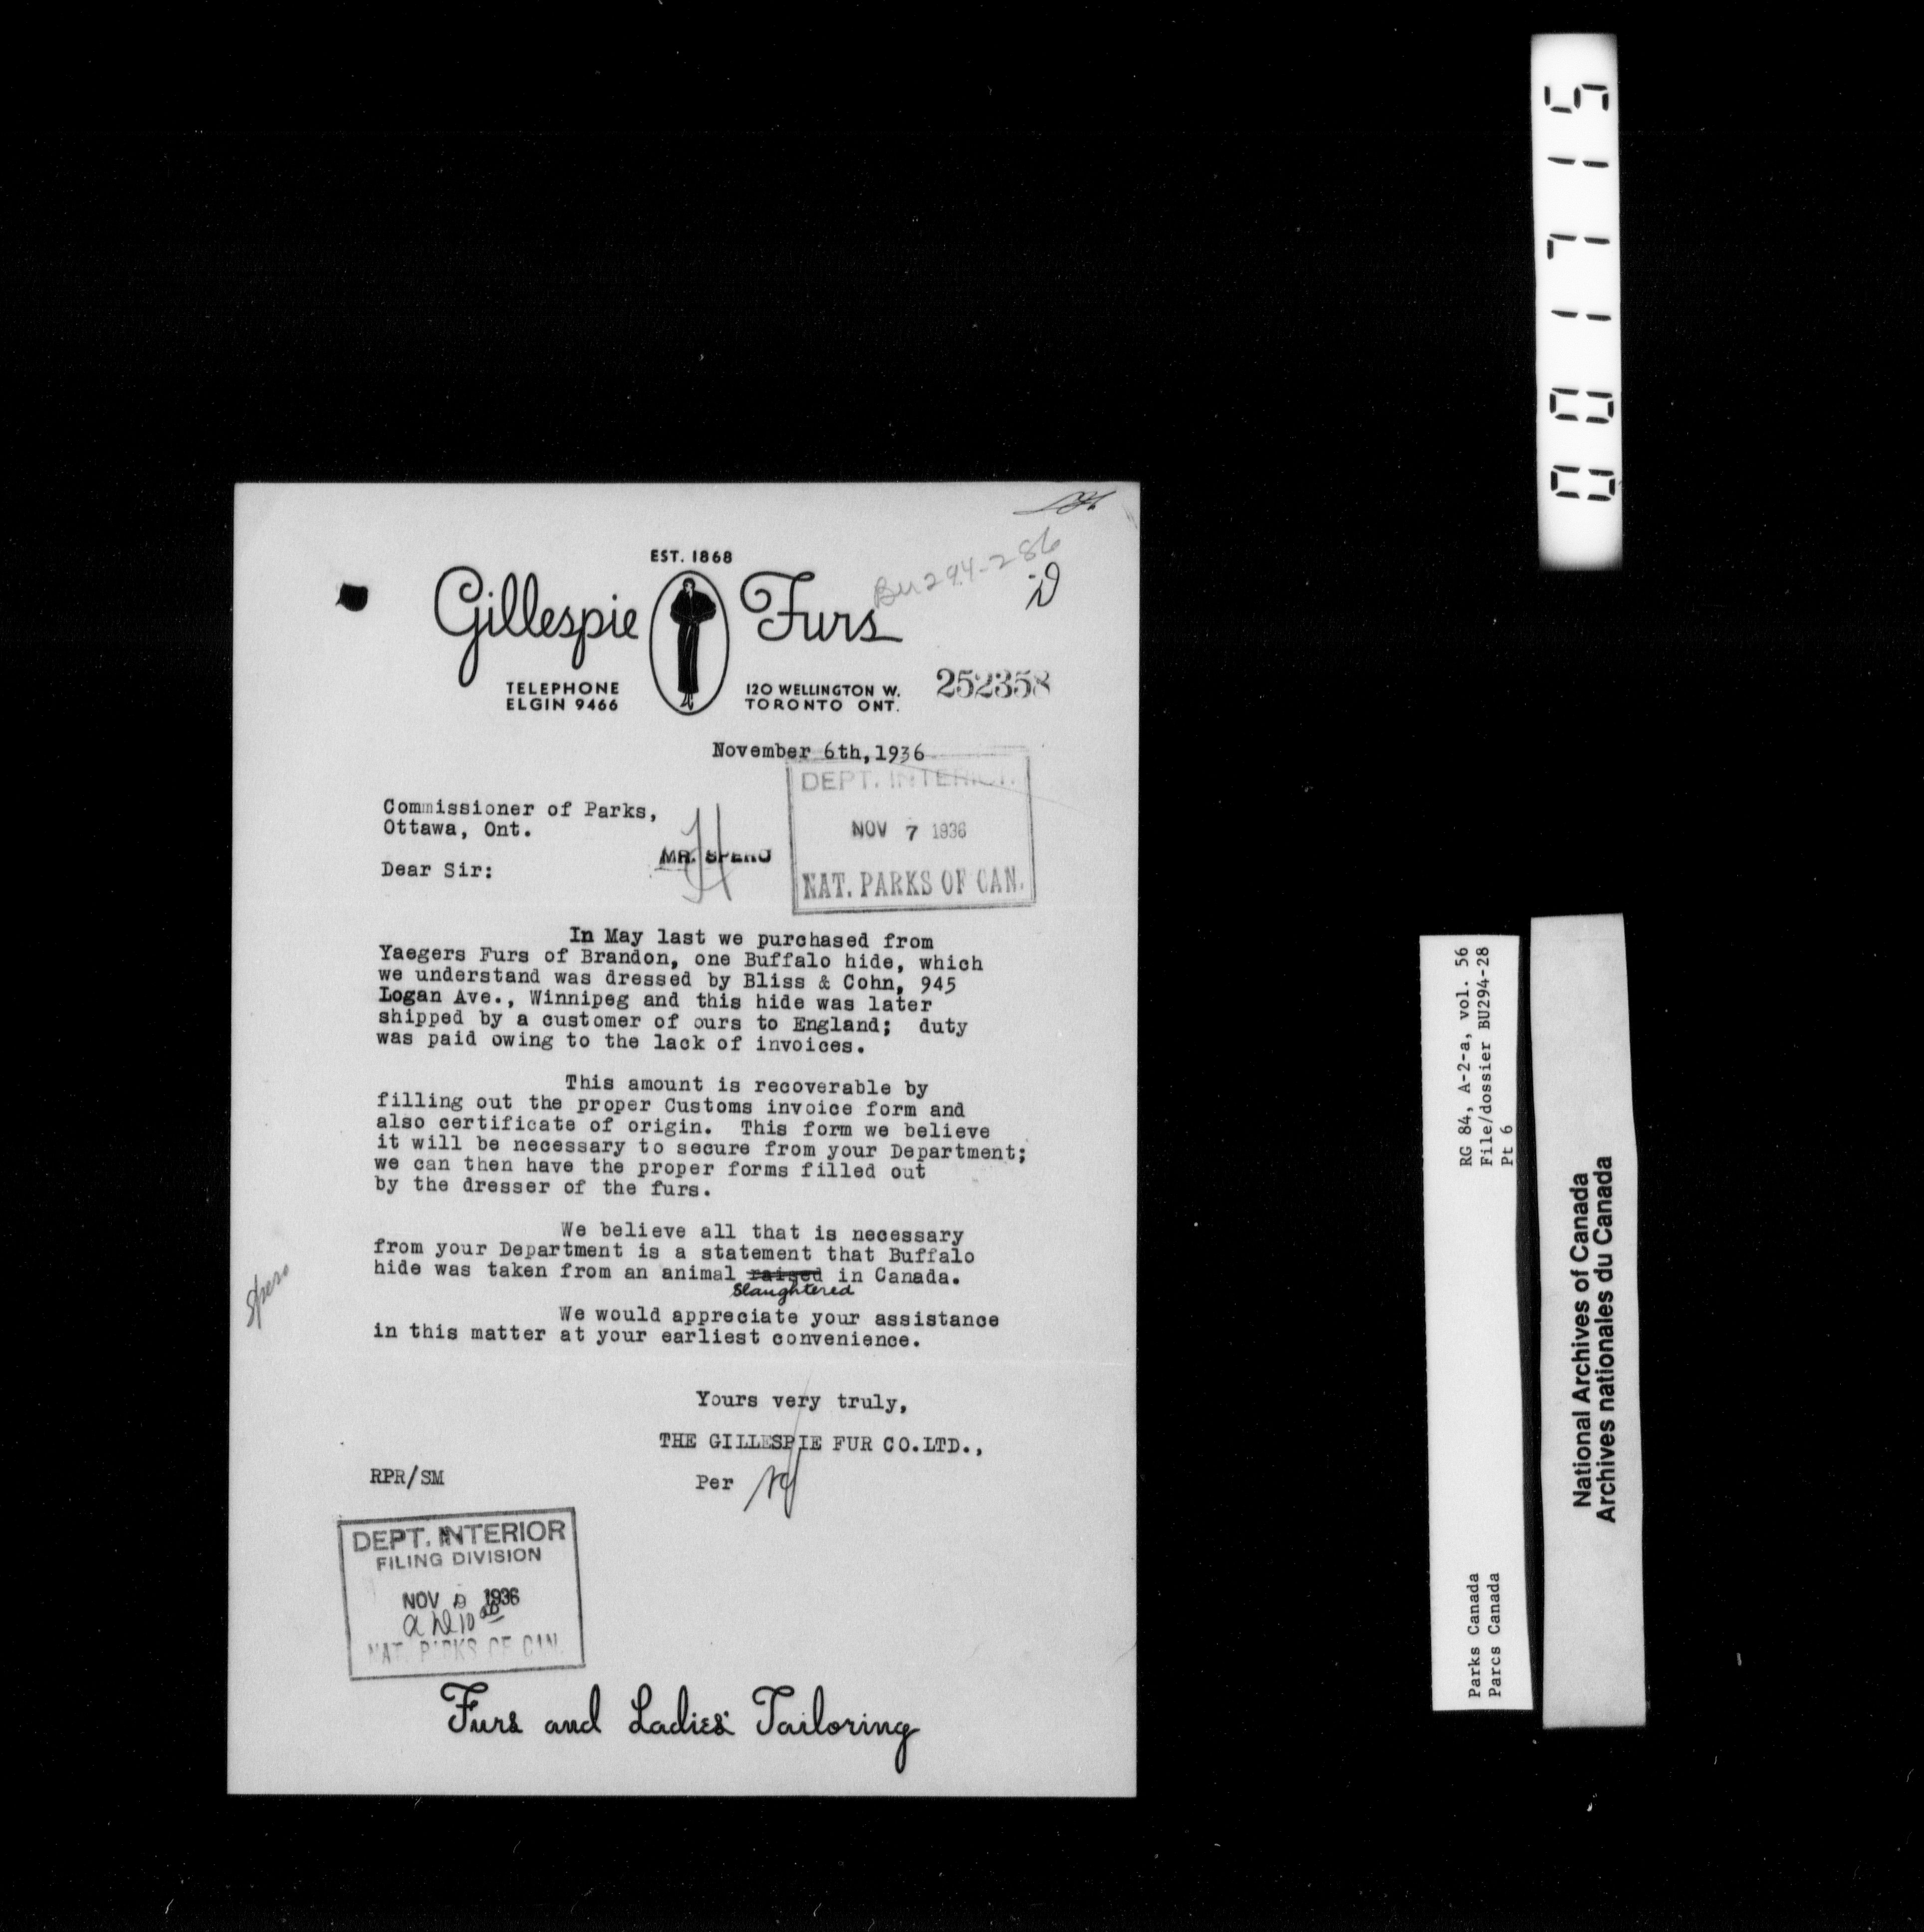 EST. 1868
Gillespie Furs
Bu294-286
D
TELEPHONE
ELGIN 9466
120 WELLINGTON W.
TORONTO ONT.
252358
November 6th,1936
DEPT. INTERIOR
NOV 7 1936
NAT. PARKS OF CAN.
Commissioner of Parks,
Ottawa, Ont.
MR. SPERO
Dear Sir:
In May last we purchased from
Yaegers Furs of Brandon, one Buffalo hide, which
we understand was dressed by Bliss & Cohn, 945
Logan Ave., Winnipeg and this hide was later
shipped by a customer of ours to England; duty
was paid owing to the lack of invoices.
This amount is recoverable by
filling out the proper Customs invoice form and
also certificate of origin. This form we believe
it will be necessary to secure from your Department;
we can then have the proper forms filled out
by the dresser of the furs.
We believe all that is necessary
from your Department is a statement that Buffalo
hide was taken from an animal raised in Canada.
Slaughtered
We would appreciate your assistance
in this matter at your earliest convenience.
Spero
Yours very truly,
THE GILLESPIE FUR CO.LTD.,
RPR/SM
Per
DEPT. INTERIOR
FILING DIVISION
NOV 9 1936
NAT. PARKS OF CAN.
Furs and Ladies' Tailoring
001715
RG 84, A-2-a, vol. 56
File/dossier BU294-28
Pt 6
Parks Canada
Parcs Canada
National Archives of Canada
Archives nationales du Canada